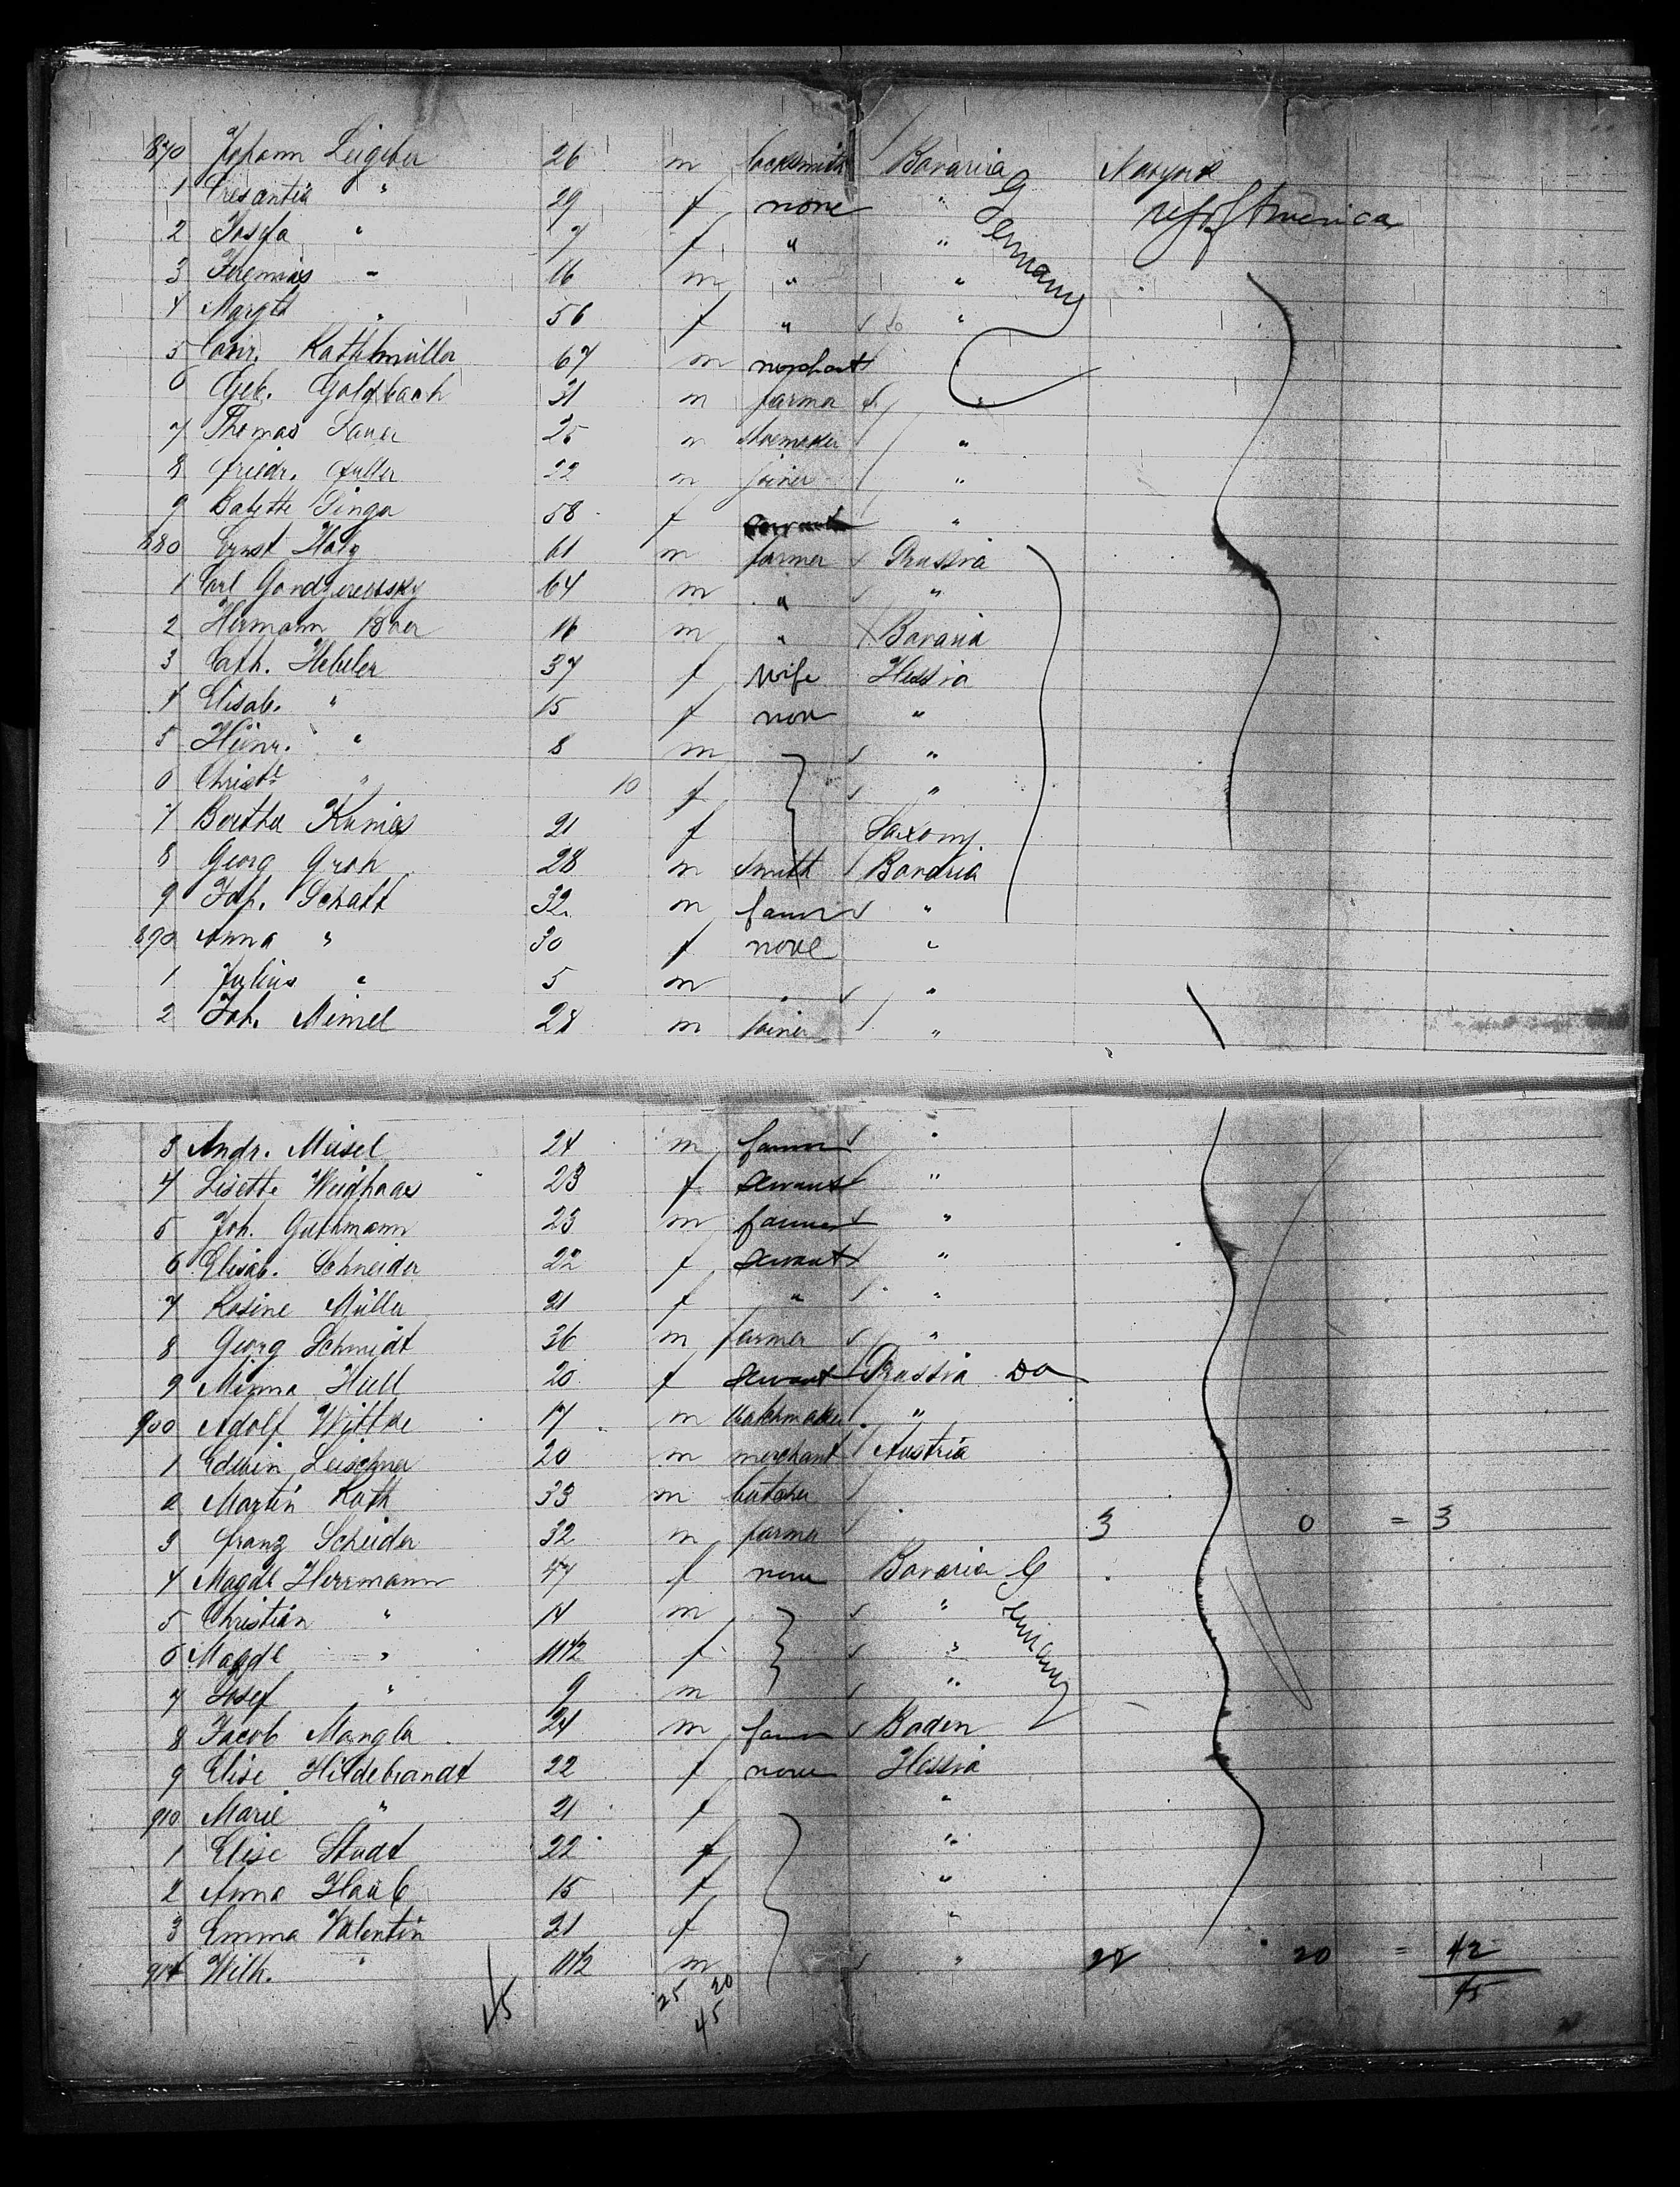 870 Johann Leigeber 26 m locksmith Bavaria Newyork
1 Cresantia " 29 f none " Germany U.S. of America
2 Josefa " 7 f " "
3 Jeremias " 16 m " "
4 Margth " 56 f " do "
5 Conr. Rathmüller 67 m merchant
6 Geb. Goldbach 31 m farmer "
7 Thomas Sauer 25 m shoemaker "
8 Friedr. 22 m joiner "
9 Babette 58 f servant "
880 Ernst 61 m farmer Prussia
1 Carl 64 m " "
2 Hermann 16 m " Bavaria
3 Cath. Hebeler 37 f wife Hessia
4 Elisab. " 15 f non "
5 Heinr. " 8 m "
6 Christe " 10 f "
7 Bertha 21 f Saxony.
8 Georg Groh 28 m smith Bavaria
9 Joh. Schatt 32 m farmer "
890 Anna " 30 f none "
1 Julius " 5 m "
2 Joh. Meinel 28 m joiner "
3 Andr. Meisel 24 m farmer "
4 Lisette Weighaas 23 f servant "
5 Joh. Guthmann 23 m farmer "
6 Elisab. Schneider 22 f servant "
7 Rosine Müller 21 f " "
8 Georg Schmidt 36 m farmer "
9 Minna Hull 20 f servant Prussia do
900 Adolf Wittke 17 m watchmaker "
1 Edwin Leischner 20 m merchant Austria
2 Martin Rath 33 m butcher
3 Franz Scheider 32 m farmer 3 0 = 3
4 Magde Herrmann 47 f none Bavaria Germany
5 Christian " 14 m "
6 Magde " 11 1/2 f "
7 Josef " 9 m "
8 Jacob Mangler 24 m farmer Baden
9 Elise Hildebrandt 22 f none Hessia
910 Marie " 21 f "
1 Elise Studt 22 f "
2 Anna Haub 15 f "
3 Emma Valentin 21 f "
914 Wilh. " 11 1/2 m " 20 = 42
45 25 20 45
45